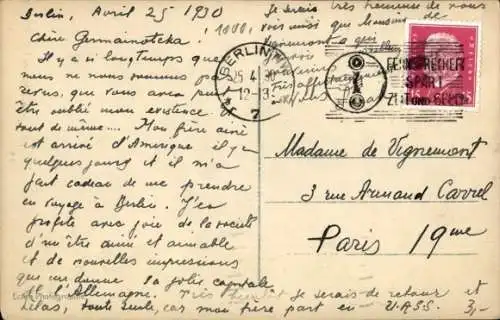 Berlin, Avril 25 1930
Chère Germainotchka!
Il y a si longtemps que
nous ne nous sommes pas
vus, que vous avez peut
être oublié mon existence
tout de même.... Mon frère aîné
est arrivé d'Amérique il y a
quelques jours et il m'a
fait cadeau de me prendre
en voyage à Berlin. J'en
profite avec joie de la société
d'un être aimé et aimable
et de nouvelles impressions
que me donne la jolie capitale
de l'Allemagne. Très bientôt je serais de retour et
hélas, toute seule, car mon frère part en U.R.S.S.
Je serais très heureuse de vous
voir ainsi que Monsieur de
Vignemont à qui
BERLIN
25.4.30
12-13
7
FERNSPRECHER
SPART
ZEIT UND GELD
Madame de Vignemont
3 rue Armand Carrel
Paris 19me
3,-